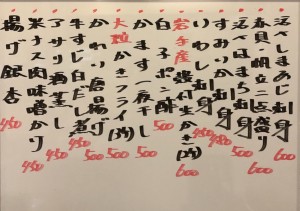 活〆しまあじ刺身 600
赤貝・帆立二点盛り 600
活〆はまち刺身 500
すみいか刺身 480
いわし刺身 450
岩手産殻付生かき(1ヶ) 600
白子ポン酢 500
かます一夜干し 500
大粒かきフライ(3ヶ) 500
かわり唐揚げ 500
牛すじ白だし煮 450
アサリ酒蒸し
米ナス肉味噌かけ 450
揚げ銀杏 450